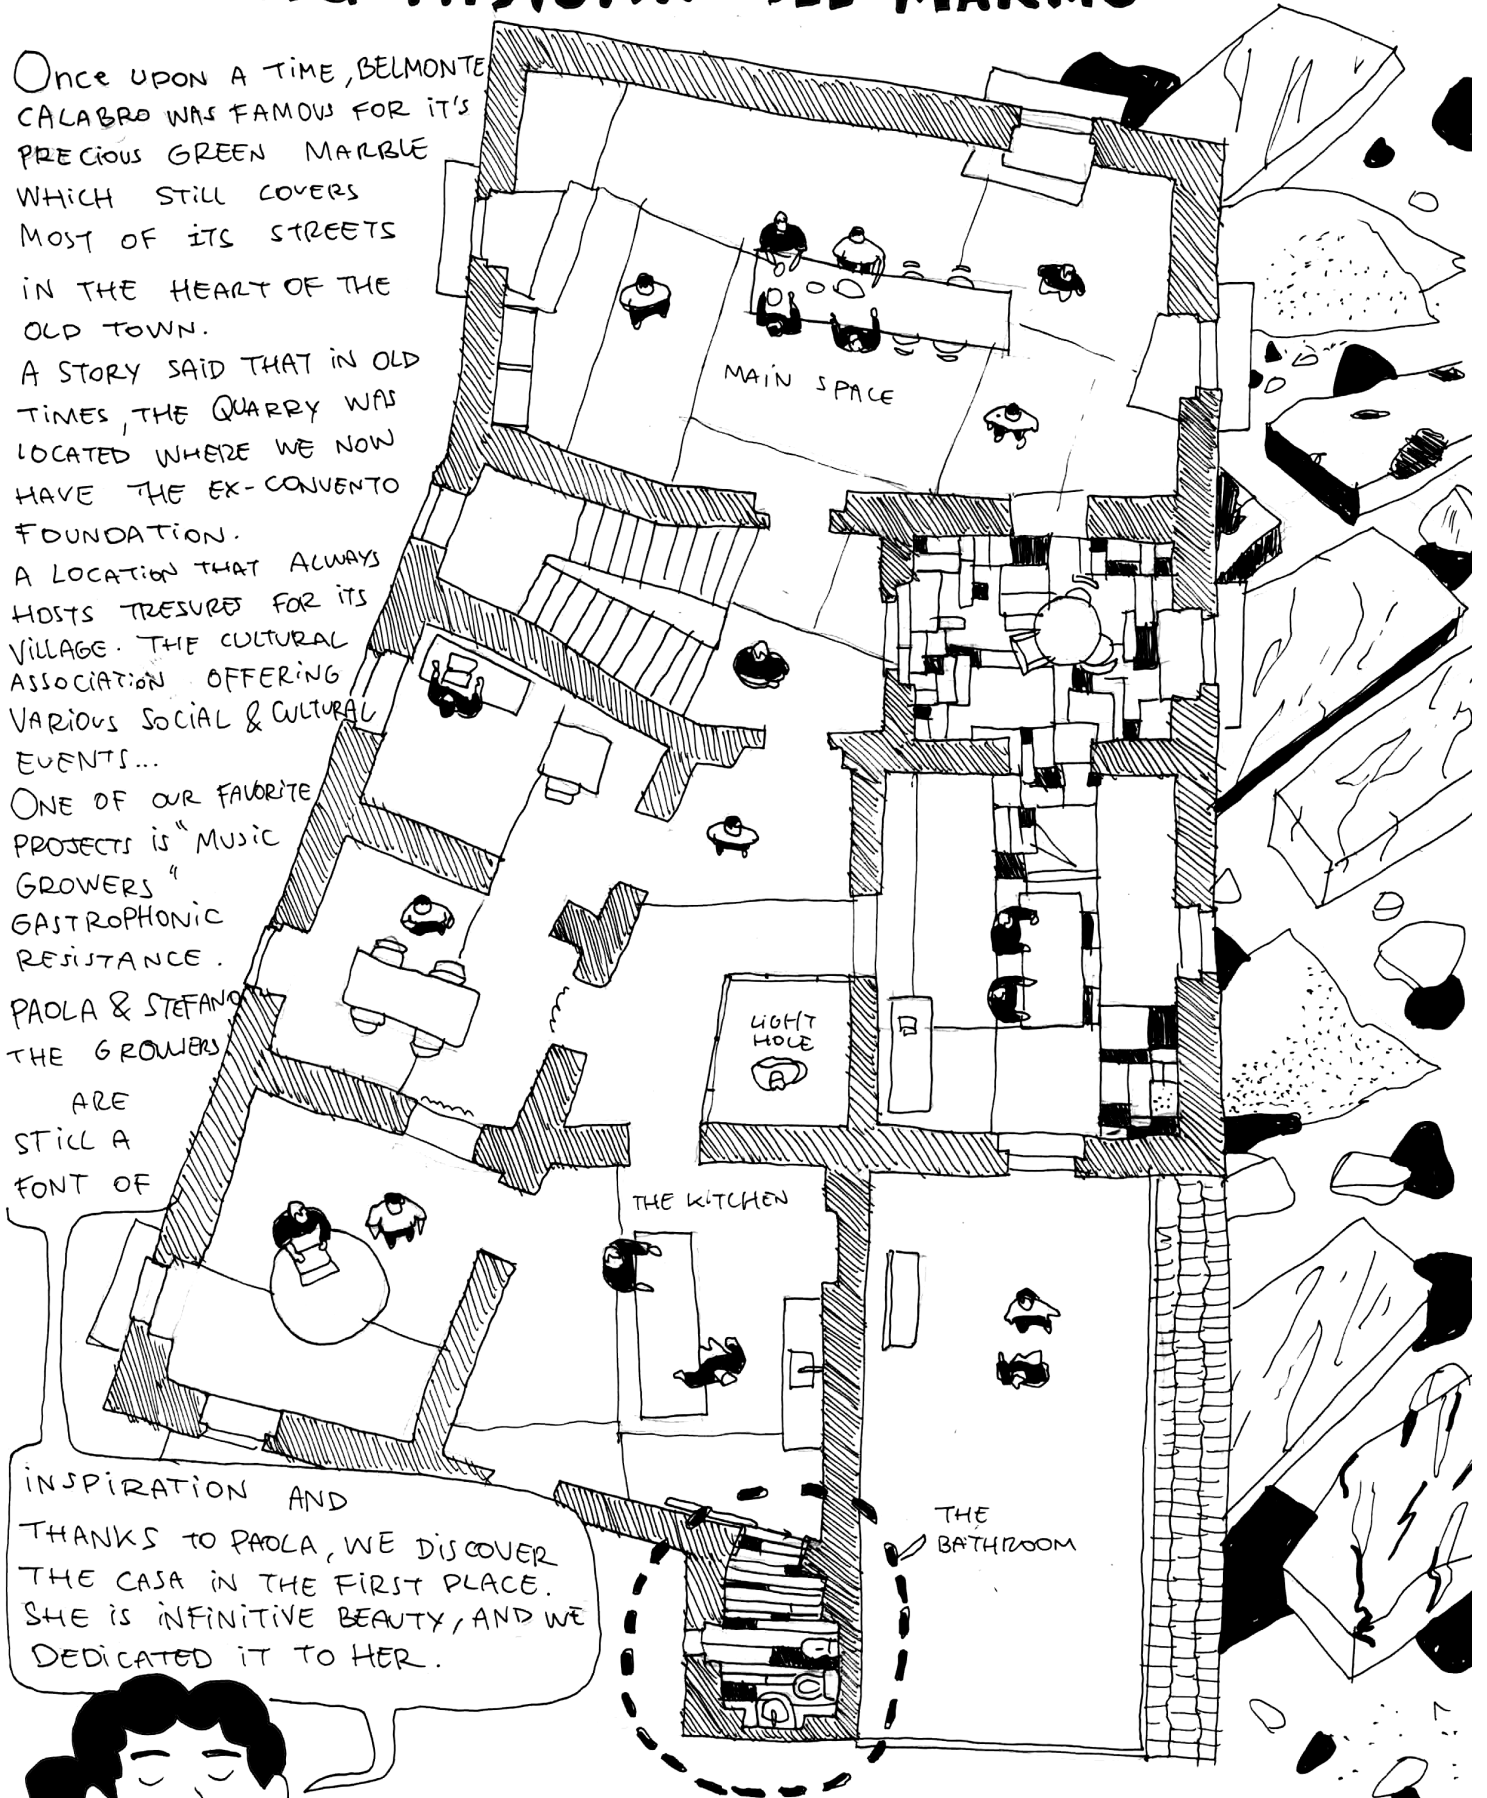 DEL MARMO
ONCE UPON A TIME, BELMONTE
CALABRO WAS FAMOUS FOR IT'S
PRECIOUS GREEN MARBLE
WHICH STILL COVERS
MOST OF ITS STREETS
IN THE HEART OF THE
OLD TOWN.
A STORY SAID THAT IN OLD
TIMES, THE QUARRY WAS
LOCATED WHERE WE NOW
HAVE THE EX-CONVENTO
FOUNDATION.
A LOCATION THAT ALWAYS
HOSTS TRESURES FOR ITS
VILLAGE. THE CULTURAL
ASSOCIATION OFFERING
VARIOUS SOCIAL & CULTURAL
EVENTS...
ONE OF OUR FAVORITE
PROJECTS IS "MUSIC
GROWERS"
GASTROPHONIC
RESISTANCE.
PAOLA & STEFANO
THE GROWERS
ARE
STILL A
FONT OF
INSPIRATION AND
THANKS TO PAOLA, WE DISCOVER
THE CASA IN THE FIRST PLACE.
SHE IS INFINITIVE BEAUTY, AND WE
DEDICATED IT TO HER.
MAIN SPACE
LIGHT
HOLE
THE KITCHEN
THE
BATHROOM